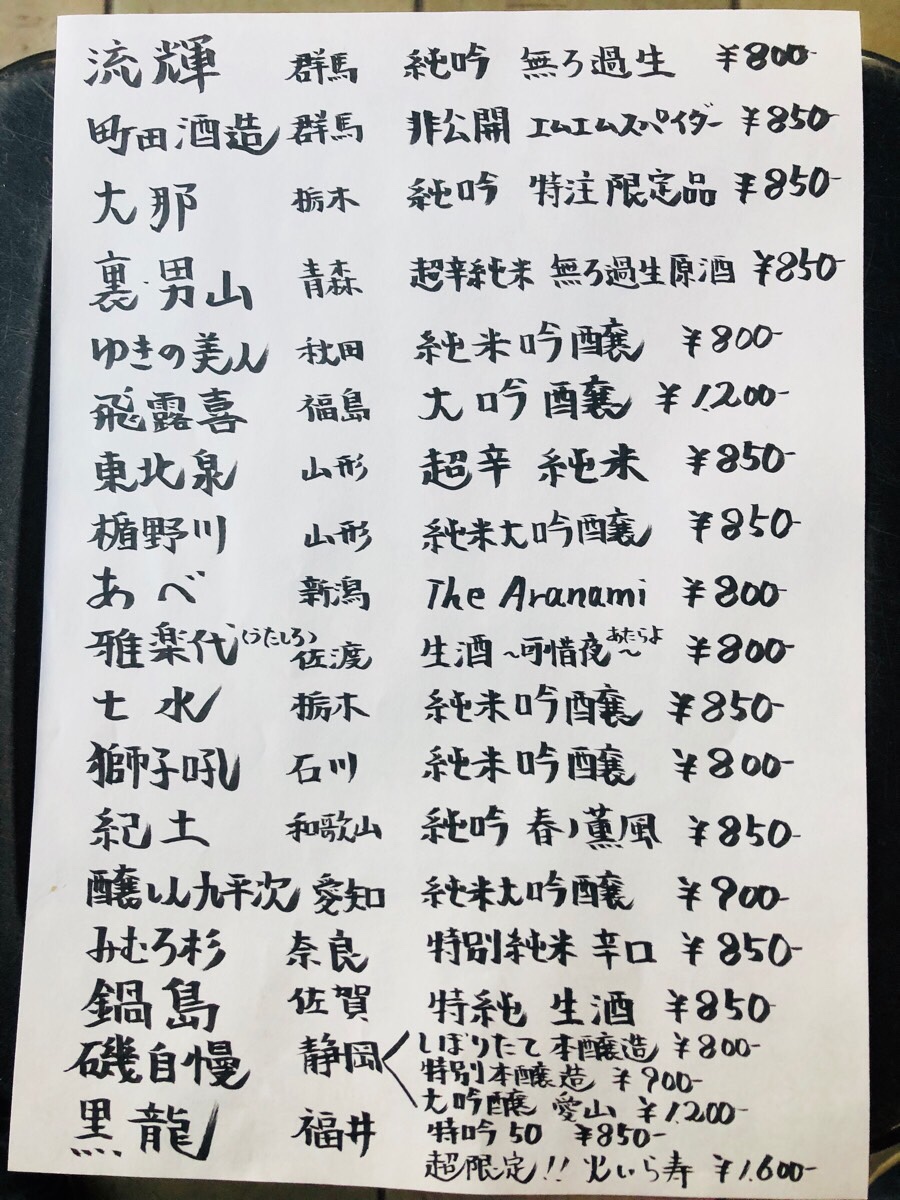 流輝 群馬 純吟 無ろ過生 ¥800-
町田酒造 群馬 非公開 エムエムスパイダー ¥850-
大那 栃木 純吟 特注限定品 ¥850-
裏・男山 青森 超辛純米 無ろ過生原酒 ¥850-
ゆきの美人 秋田 純米吟醸 ¥800-
飛露喜 福島 大吟醸 ¥1,200-
東北泉 山形 超辛 純米 ¥850-
楯野川 山形 純米大吟醸 ¥850-
あべ 新潟 The Aranami ¥800-
雅楽代(うたしろ) 佐渡 生酒 〜可惜夜〜 あたらよ ¥800-
七水 栃木 純米吟醸 ¥850-
獅子吼 石川 純米吟醸 ¥800-
紀土 和歌山 純吟 春ノ薫風 ¥850-
醸し人九平次 愛知 純米大吟醸 ¥900-
みむろ杉 奈良 特別純米 辛口 ¥850-
鍋島 佐賀 特純 生酒 ¥850-
磯自慢 静岡 しぼりたて本醸造 ¥800-
特別本醸造 ¥900-
大吟醸 愛山 ¥1,200-
黒龍 福井 特吟50 ¥850-
超限定!! 火いら寿 ¥1,600-